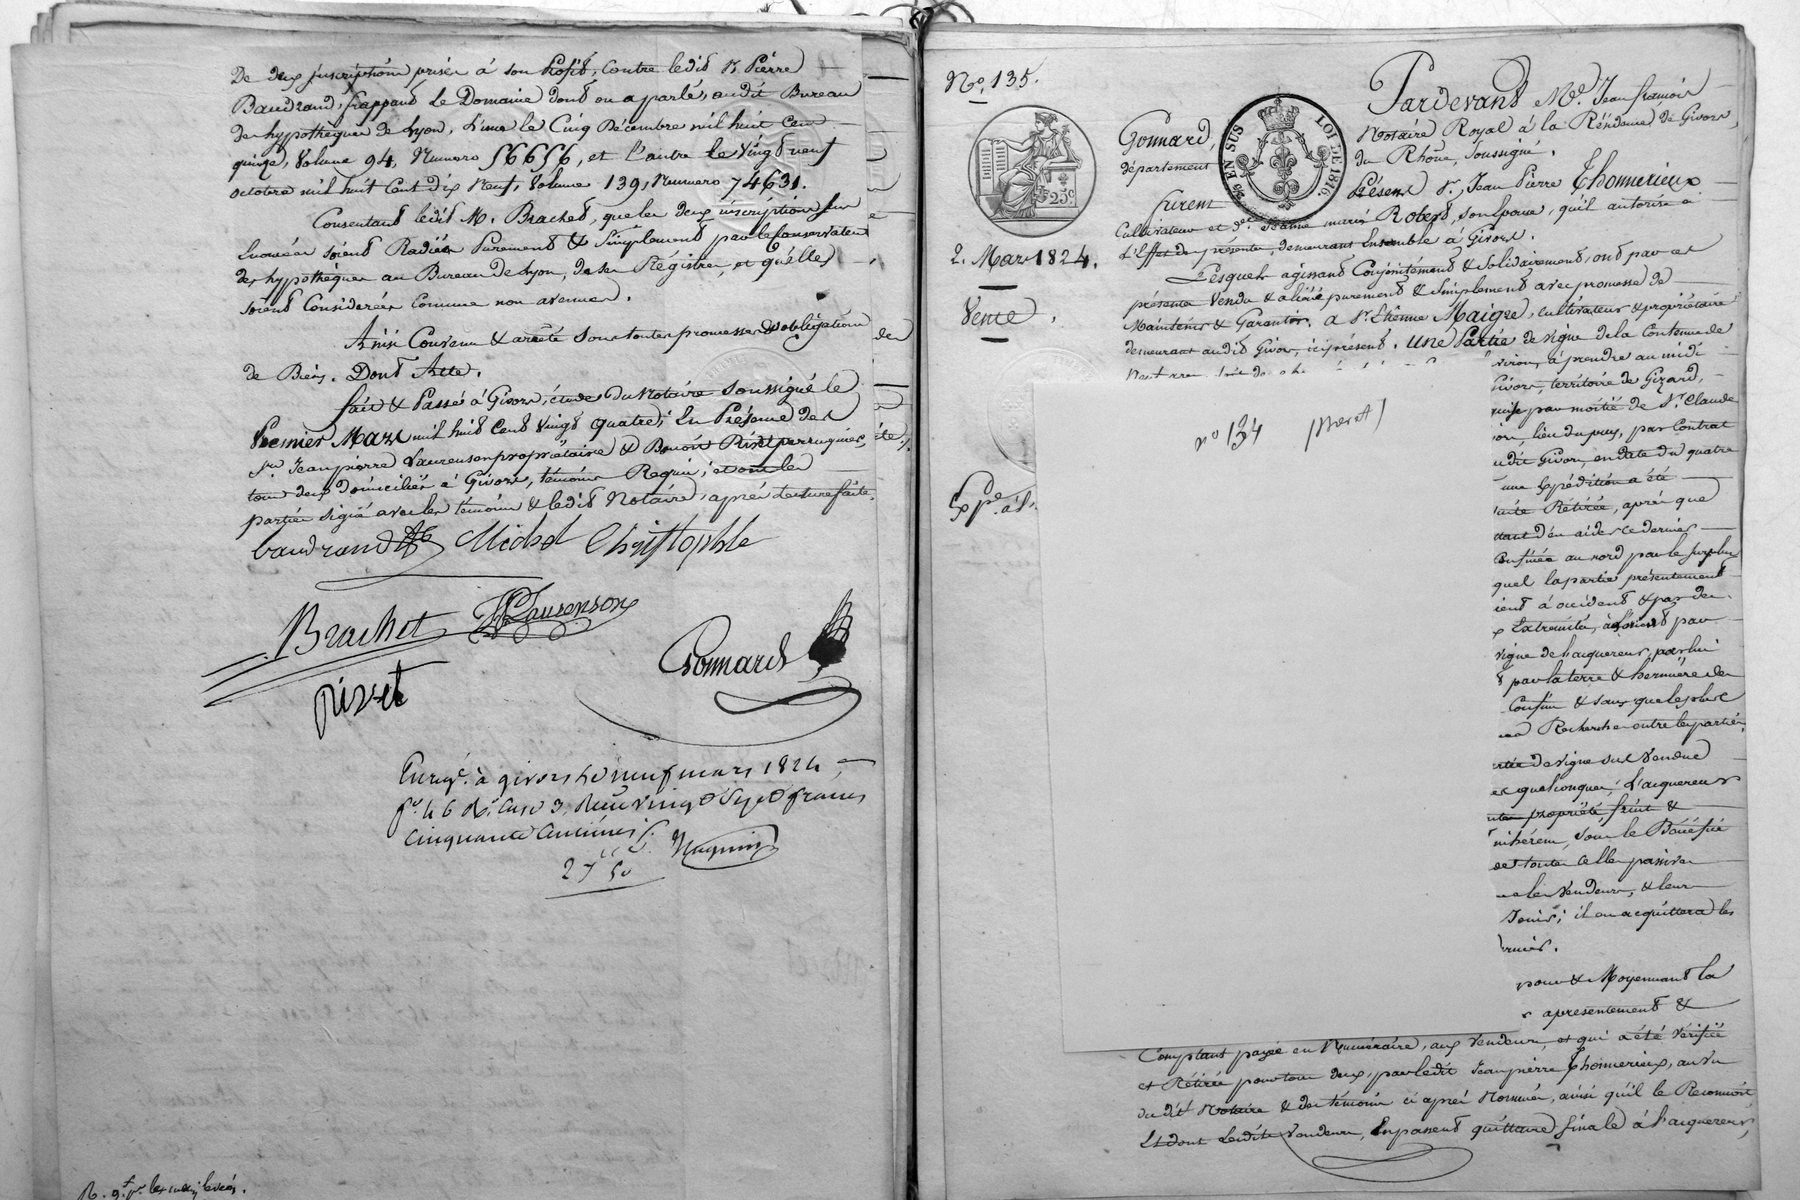 De deux Inscriptions prises à son Profit, Contre ledit Sr. Pierre
Baudrand, frappant le Domaine dont on a parlé, audit Bureau
des hypothèques de Lyon, L'une le Cinq Décembre mil huit cent
quinze, Volume 94, Numero 56656, et l'autre le Vingt neuf
octobre mil huit Cent dix Neuf, Volume 139, Numero 74631.
Consentant ledit M. Brachet, que les deux inscriptions sus
Enoncées soient Radiées Purement & Simplement par le Conservateur
des hypothèques au Bureau de Lyon, de ses Régistres, et qu'elles
soient Considerées Comme non avenues.
Ainsi Convenu & arrêté Sous toutes promesses & obligation
de Biens. Dont Acte.
fait & Passé à Givors, étude du Notaire Soussigné le
Premier Mars mil huit Cent Vingt quatre; En Présence de
Srs. Jean pierre Laurenson propriétaire & Benoit Rivet perruquier,
tous deux domiciliés à Givors, témoins Requis; et ont les
parties signé avec les témoins & ledit Notaire, après Lecture faite.
baudrand Michel Christophle
Brachet JP Laurenson
Gonnard
Rivet
Enregé. à givors le neuf mars 1824,
fo. 46 Ro. Case 3, Reçu vingt Sept francs
Cinquante Centimes
27 50
No. 135.
2. Mars 1824.
Vente.
Pardevant Me. Jean françois
Gonnard, Notaire Royal à la Résidence de Givors,
département du Rhône, Soussigné.
25 EN SUS LOI DE 1816
25c.
furent Présent Sr. Jean Pierre Thomerieux
Cultivateur et De. Jeanne marie Robert, son Epouse, qu'il autorise à
L'Effet des présentes, demeurant Ensemble à Givors.
Lesquels agissant Conjointement & Solidairement, ont par ces
présentes Vendu & aliéné purement & Simplement avec promesse de
Maintenir & Garantir. à Sr. Etienne Maigre, cultivateur & propriétaire
demeurant audit Givors, ici présent. Une Partie de vigne de la Contenue de
à prendre au midi
Givors, territoire de Gizard,
par moitié de Sr. Claude
lieu du puy, par Contrat
Givors, en date du quatre
une Expédition a été
Rétirée, après que
d'en aider ce dernier
Confinée au nord par le surplus
quel la partie présentement
à occident & par des
Extremités, à
vigne de l'acquereur, par lui
par la terre & hermière de
Confins & sans que le plus
Rechercher entre les parties
de vigne sus Vendue
quelconques, L'acquereur
propriété
sous le Bénéfice
de toutes celles passives
les Vendeurs, & leurs
Jouir; il en acquittera les
no 134
Expé. à
pour & Moyennant la
apresentement &
Comptant payée en Numéraire, aux Vendeurs, et qui a été Vérifiée
et Rétirée pour tous deux, par ledit Jean pierre Thomerieux, au vu
dudit Notaire & des témoins ci après Nommés, ainsi qu'il le Reconnoit,
Et dont lesdits Vendeurs, En passent quittance finale à l'acquereur,